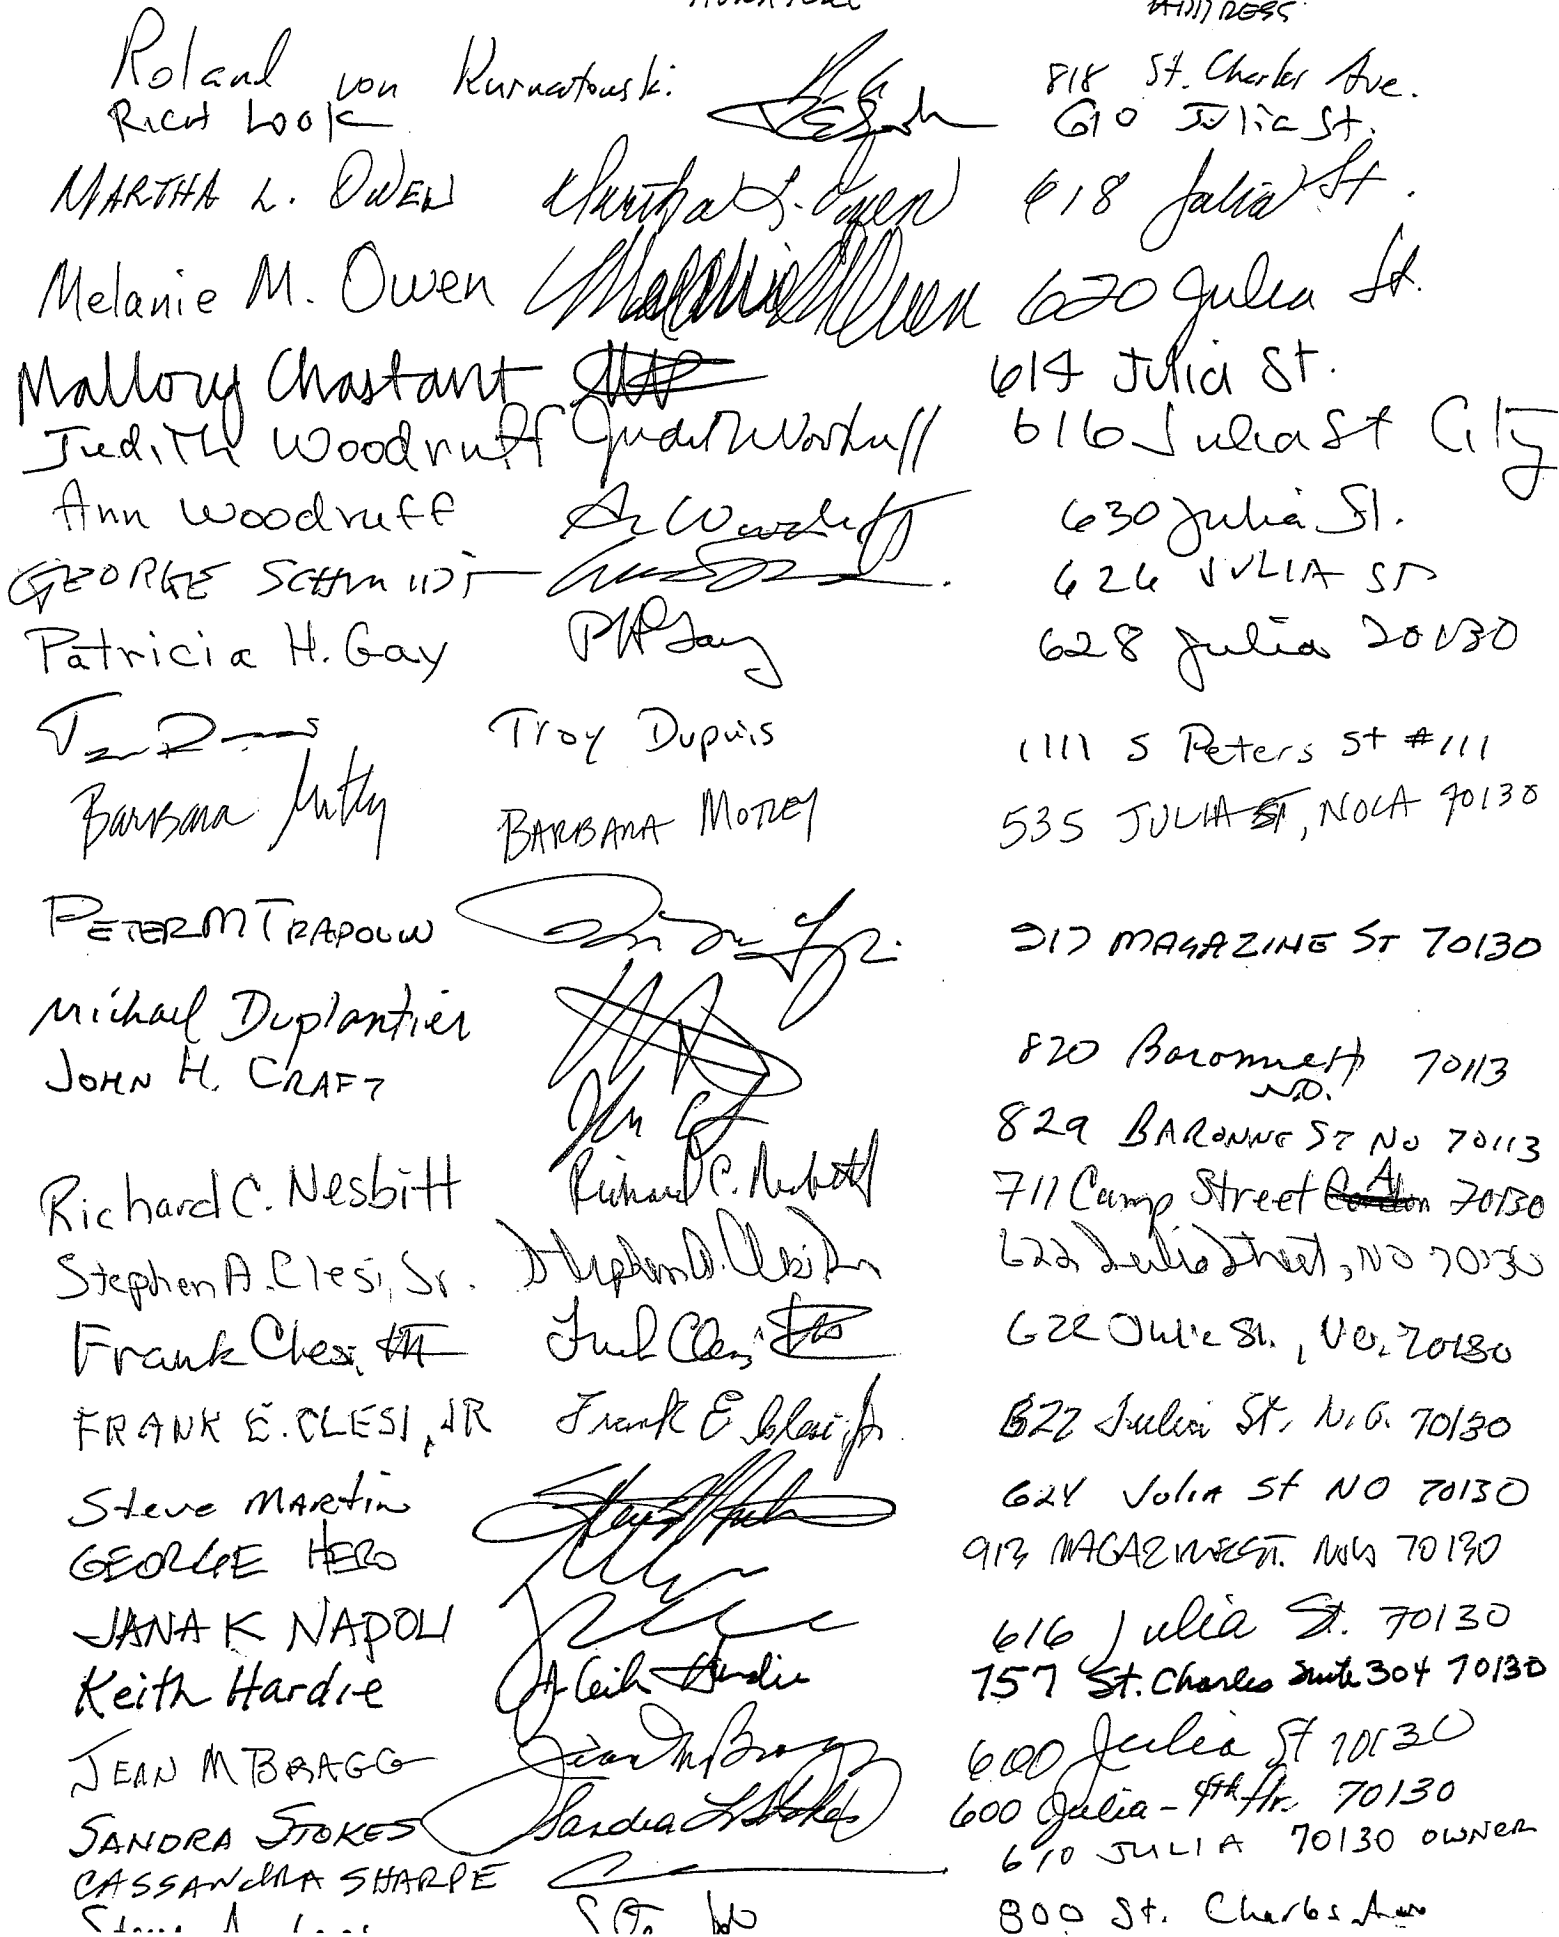 ADDRESS
Roland von Kurnatowski. 818 St. Charles Ave.
Rich Look 610 Julia St.
MARTHA L. OWEN Martha L. Owen 618 Julia St.
Melanie M. Owen Melanie M Owen 620 Julia St.
Mallory Chastant 614 Julia St.
Judith Woodruff Judith Woodruff 616 Julia St City
Ann Woodruff Ann Woodruff 630 Julia St.
GEORGE SCHMIDT 626 JULIA ST
Patricia H. Gay PH Gay 628 Julia 70130
Troy Dupuis 1111 S Peters St #111
Barbara Motley BARBARA MOTLEY 535 JULIA ST, NOLA 70130
PETER M TRAPOLIN 917 MAGAZINE ST 70130
Michael Duplantier 820 Baronne St 70113
N.O.
JOHN H. CRAFT 829 BARONNE ST NO 70113
Richard C. Nesbitt Richard C. Nesbitt 711 Camp Street 70130
Stephen A. Clesi, Sr. Stephen A. Clesi Sr 622 Julia Street, NO 70130
Frank Clesi, III Frank Clesi III 622 Julia St., NO, 70130
FRANK E. CLESI, JR Frank E Clesi, Jr. 622 Julia St, N.O. 70130
Steve Martin Steve Martin 624 Julia St NO 70130
GEORGE HERO 913 MAGAZINE ST. NOLA 70130
JANA K NAPOLI 616 Julia St. 70130
Keith Hardie A Keith Hardie 757 St. Charles Suite 304 70130
JEAN M BRAGG Jean M Bragg 600 Julia St 70130
SANDRA STOKES Sandra L Stokes 600 Julia - 4th flr. 70130
CASSANDRA SHARPE 610 JULIA 70130 OWNER
800 St. Charles Ave